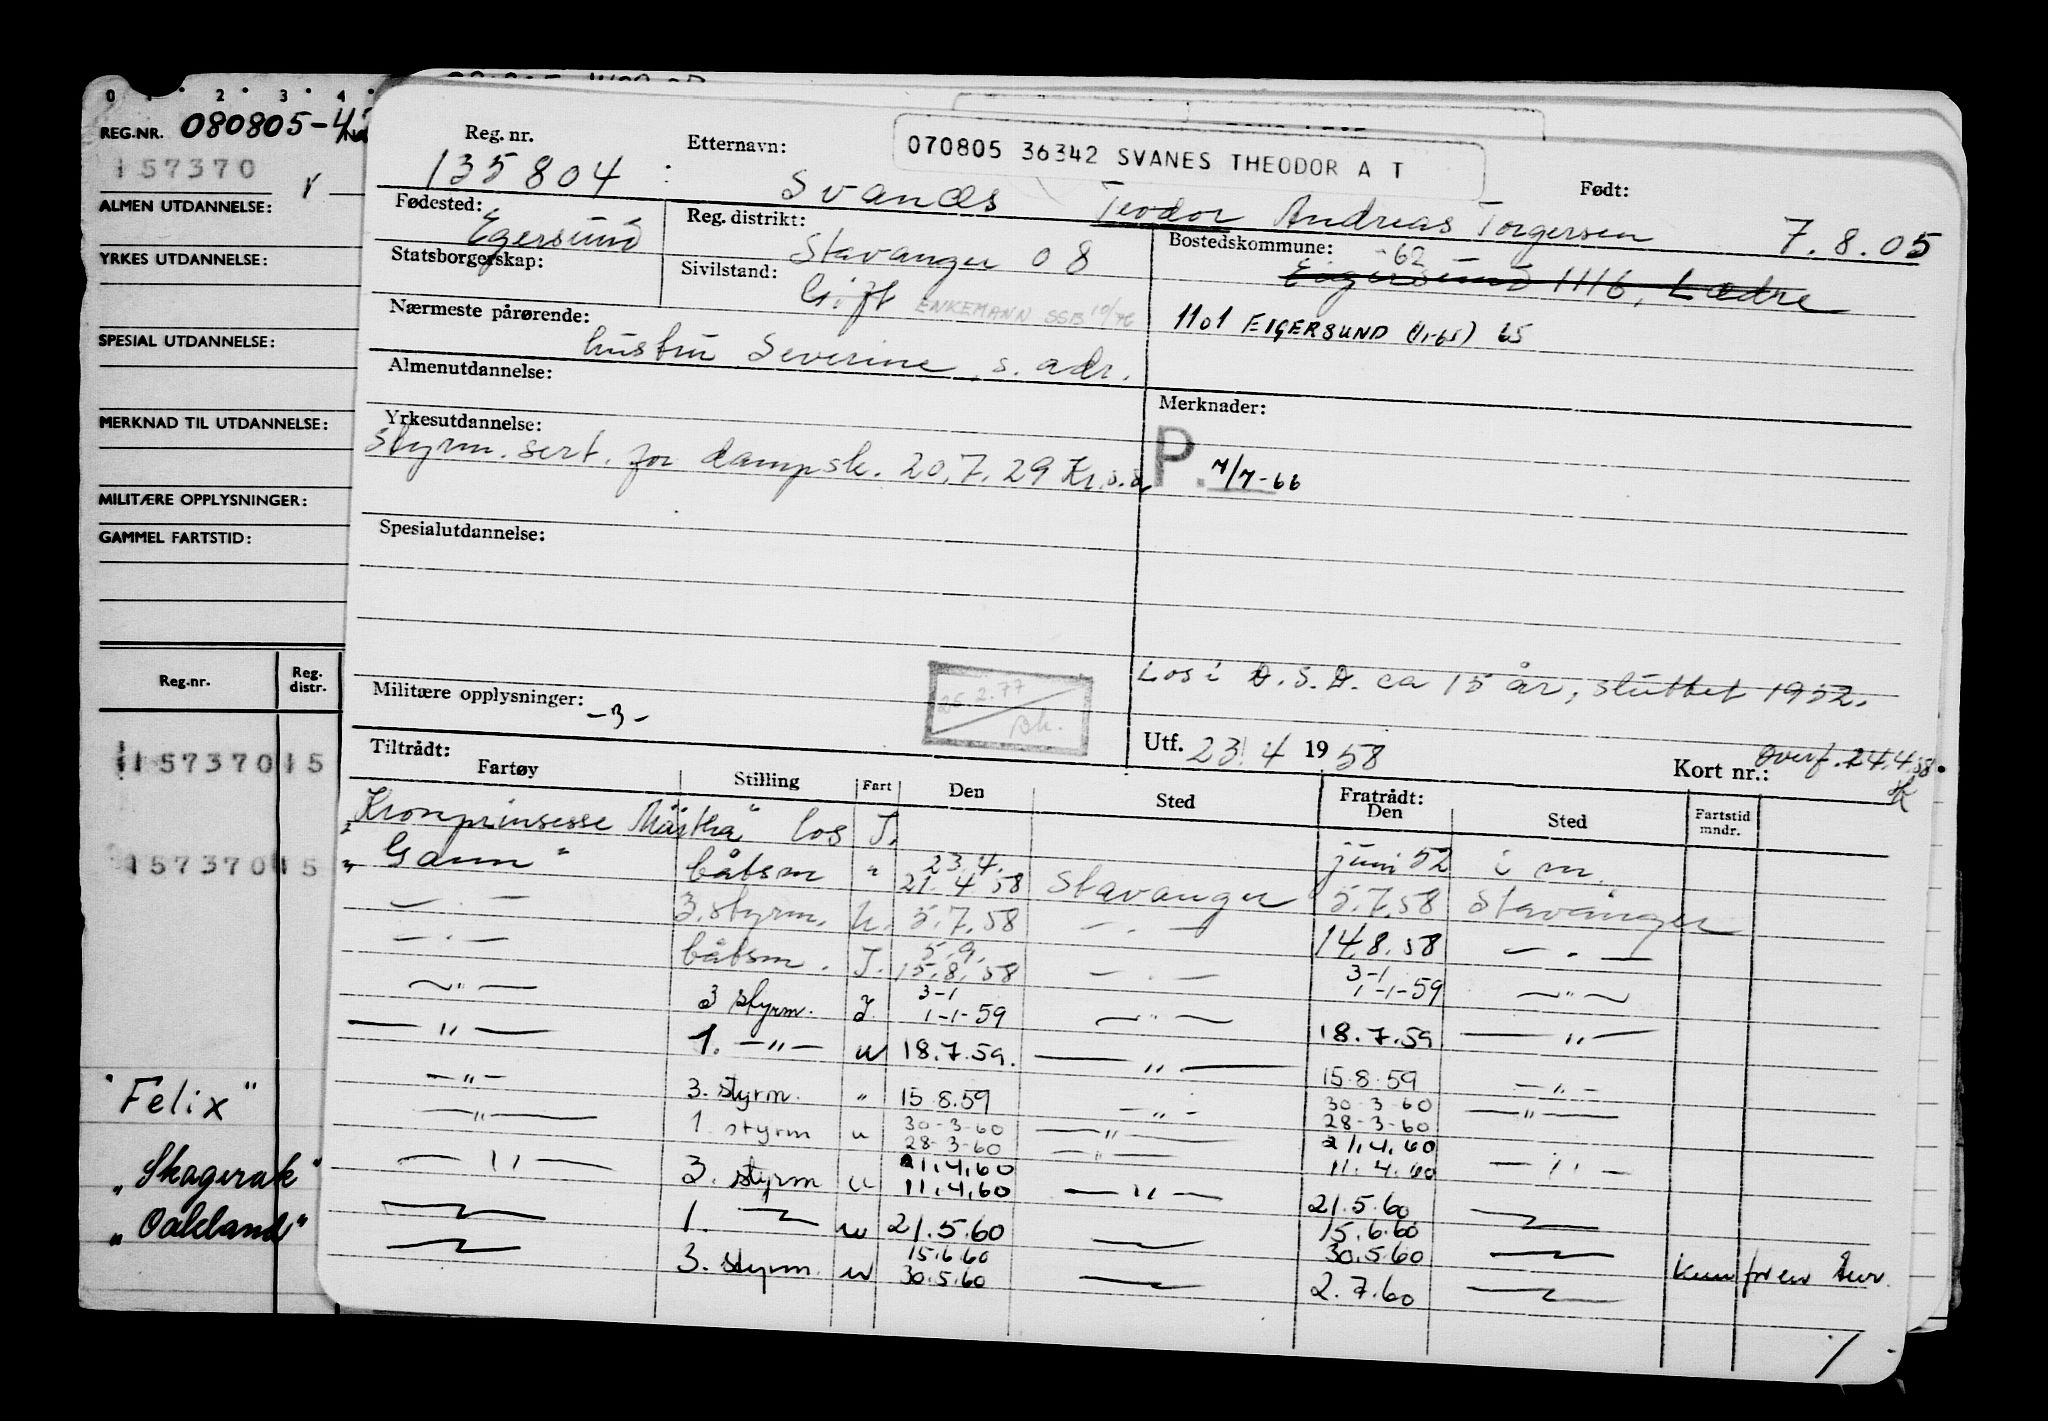 0 1 2 3 4
REG.NR. 080805-4
157370
ALMEN UTDANNELSE:
YRKES UTDANNELSE:
SPESIAL UTDANNELSE:
MERKNAD TIL UTDANNELSE:
MILITÆRE OPPLYSNINGER:
GAMMEL FARTSTID:
Reg.nr. Reg. distr.
157370 15
157370 15
"Felix"
"Skagerak"
"Oakland"
070805 36342 SVANES THEODOR A T
Reg. nr. Etternavn: Født:
135804 Svanæs Teodor Andreas Torgersen 7.8.05
Fødested: Reg. distrikt: Bostedskommune:
Egersund Stavanger 08 -62
Eigersund 1116, Lædre
Statsborgerskap: Sivilstand:
Gift ENKEMANN SSB 10/76
1101 EIGERSUND (1/1-65) 65
Nærmeste pårørende:
hustru Severine, s. adr.
Almenutdannelse: Merknader:
Yrkesutdannelse:
Styrm. sert. for dampsk. 20.7.29 Kr.s.s. P. 7/7-66
Spesialutdannelse:
Los i D.S.D. ca 15 år, sluttet 1952.
Militære opplysninger: -3-
25.2.77
Bk.
Utf. 23.4 1958 Kort nr.: Overf. 24.4.58.
Tiltrådt: Fratrådt:
Fartøy Stilling Fart Den Sted Den Sted Fartstid mndr.
"Kronprinsesse Märtha" los I. juni 52 i m.
"Gann" båtsm " 23.4. 21.4 58 Stavanger 5.7.58 Stavanger
— . — 3. styrm. U. 5.7.58 — . — 14.8.58 — . —
— . — båtsm. I. 5.9. 15.8.58 — . — 3-1 1-1-59 — " —
— " — 3 styrm. I 3-1 1-1-59 — " — 18.7.59 — " —
— " — 1. — " — u 18.7.59. — " — 15.8.59 — " —
— " — 3. styrm. " 15.8.59 — " — 30-3-60 28-3-60 — " —
— " — 1. styrm u 30-3-60 28-3-60 — " — 21.4.60 11.4.60 — " —
— " — 3. styrm u 21.4.60 11.4.60 — " — 21.5.60 — " —
— " — 1. — " — u 21.5.60 — " — 15.6.60 30.5.60 — " —
— " — 3. styrm. u 15.6.60 30.5.60 — " — 2.7.60 — " — Kun for en
1